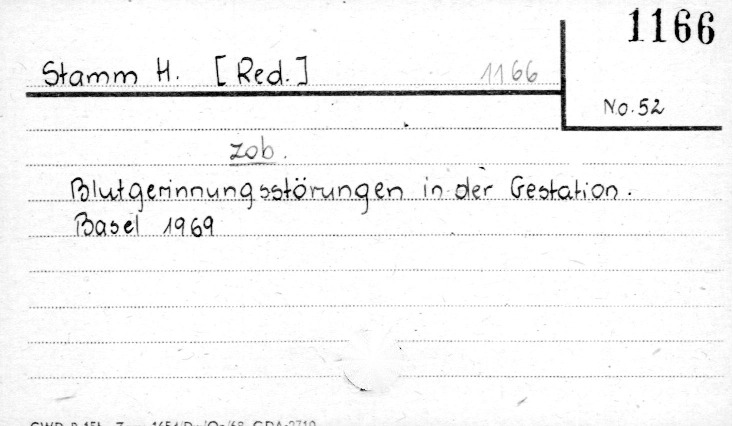 1166
Stamm H. [Red.] 1166
No. 52
zob.
Blutgerinnungsstörungen in der Gestation.
Basel 1969